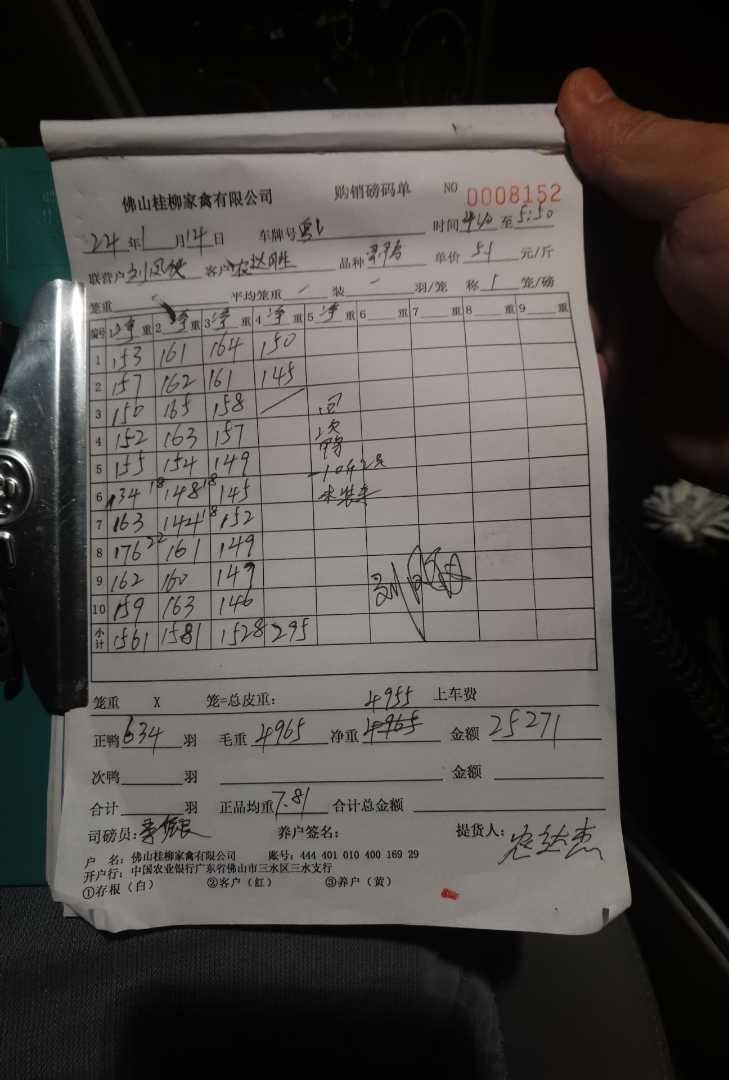 佛山桂柳家禽有限公司 购销磅码单 NO 0008152
24年1月14日 车牌号 时间 至5:50
联营户 客户 品种 单价 51 元/斤
笼重 平均笼重 装 羽/笼 称 1 笼/磅
编号 1 净重 2 净重 3 净重 4 净重 5 净重 6 重 7 重 8 重 9 重
1 153 161 164 150
2 157 162 161 145
3 156 165 158
4 152 163 157 次
5 155 154 149
6 134 18 148 18 145 未装车
7 163 144 18 152
8 176 22 161 149
9 162 160 149
10 159 163 146
小计 1561 1581 1528 295
笼重 X 笼=总皮重: 4955 上车费
正鸭 634 羽 毛重 4965 净重 4965 金额 25271
次鸭 羽 金额
合计 羽 正品均重 7.81 合计总金额
司磅员: 养户签名: 提货人:
户 名: 佛山桂柳家禽有限公司 账号: 444 401 010 400 169 29
开户行: 中国农业银行广东省佛山市三水区三水支行
①存根(白) ②客户(红) ③养户(黄)